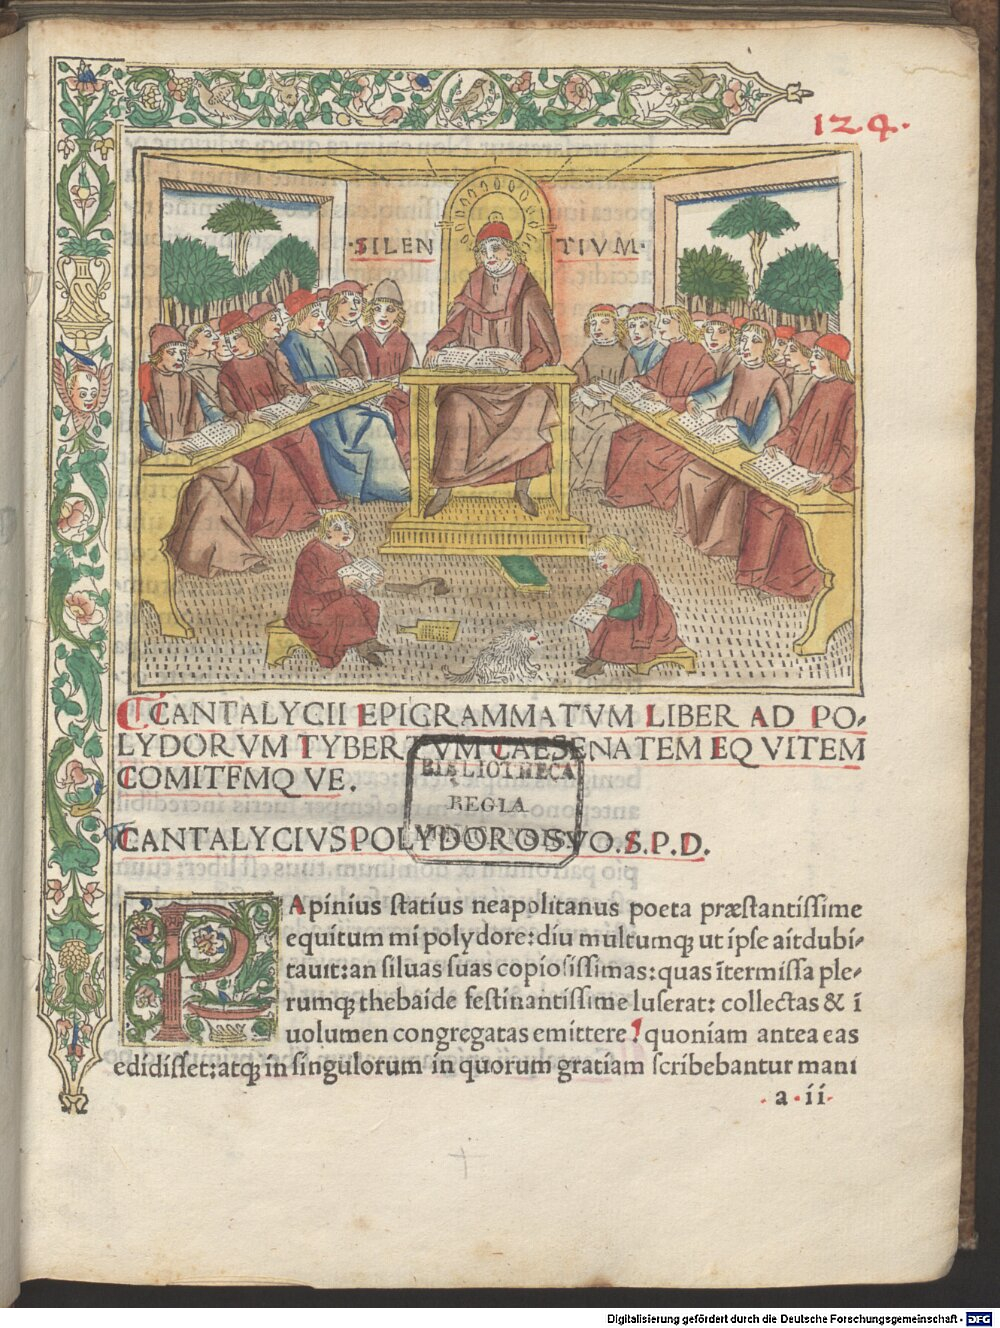 124.
·SILEN TIVM·
CANTALYCII EPIGRAMMATVM LIBER AD PO,
LYDORVM TYBERTVM CAESENATEM EQVITEM
COMITEMQVE.
BIBLIOTHECA
REGIA
MONACENSIS
CANTALYCIVS POLYDORO SVO.S.P.D.
PApinius ſtatius neapolitanus poeta præſtantiſſime
equitum mi polydore: diu multumqꝫ ut ipſe ait dubi-
tauit: an ſiluas ſuas copioſiſſimas: quas ītermiſſa ple-
rumqꝫ thebaide feſtinantiſſime luſerat: collectas & ī
uolumen congregatas emittere? quoniam antea eas
edidiſſet: atqꝫ in ſingulorum in quorum gratiam ſcribebantur mani
a·ii·
Digitalisierung gefördert durch die Deutsche Forschungsgemeinschaft - DFG